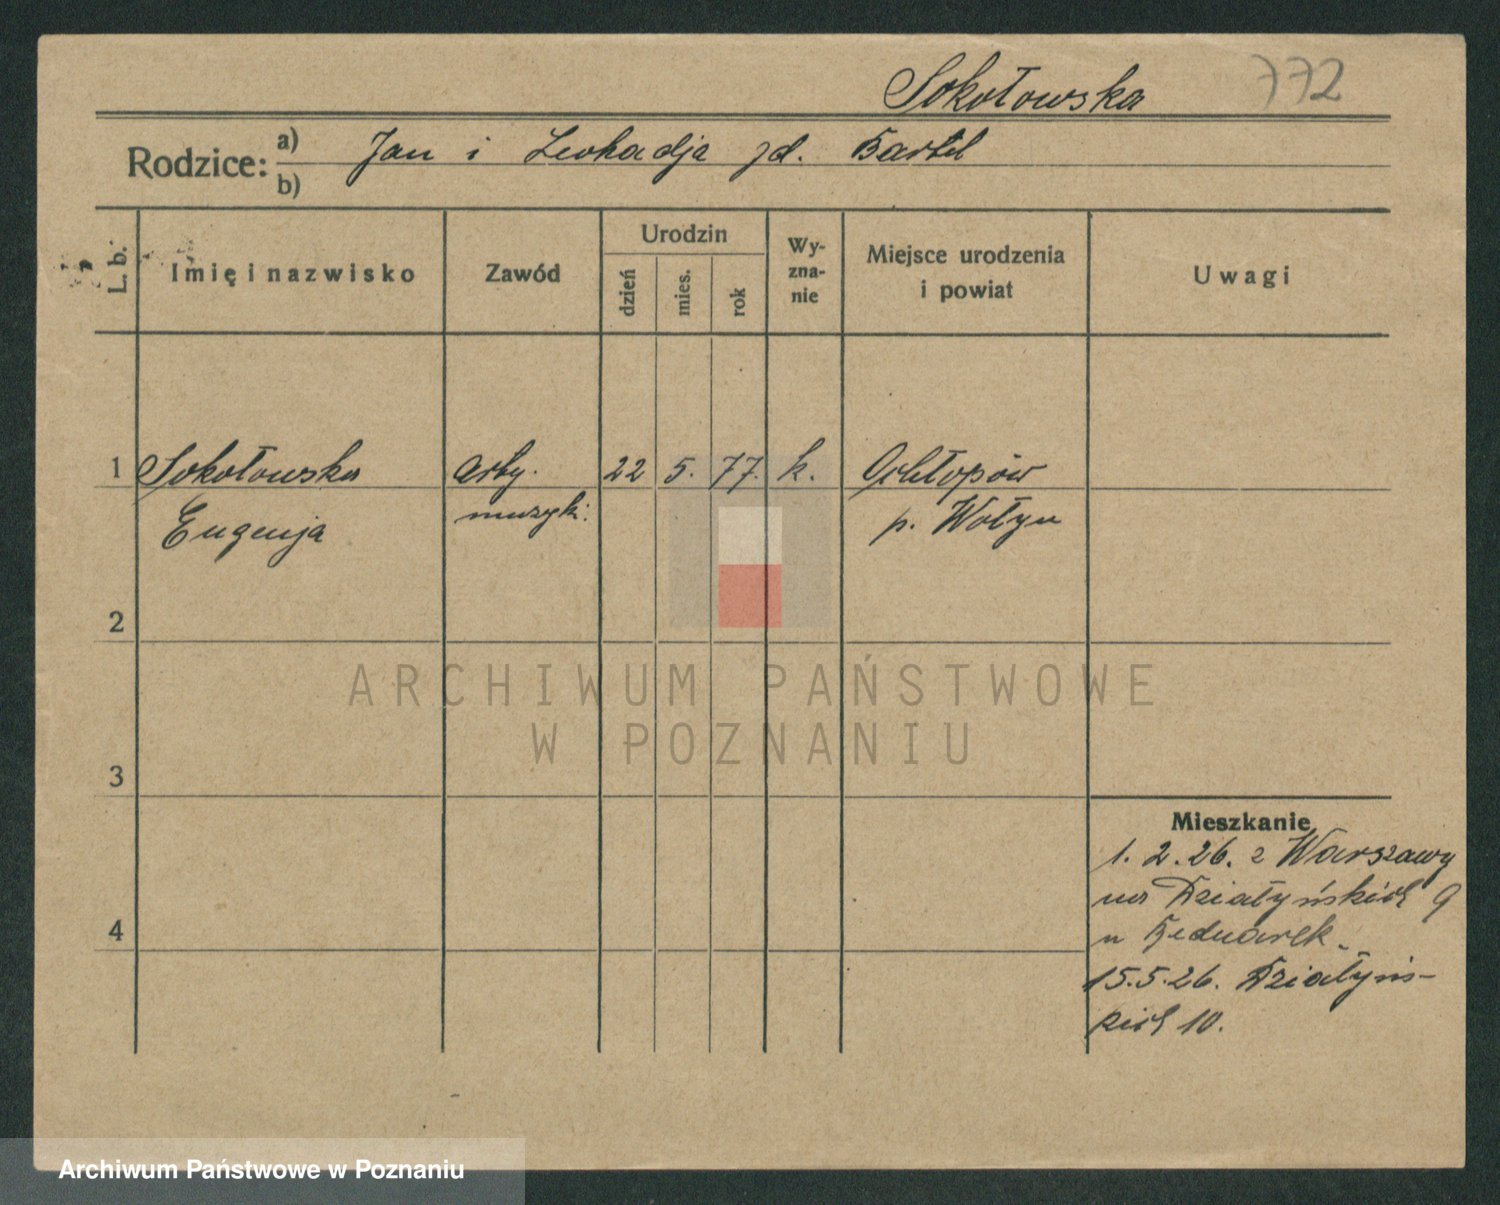 Sokołowska 772
Rodzice: a) Jan i Leokadja zd. Bartel
b)
L. b. Imię i nazwisko Zawód Urodzin dzień mies. rok Wyznanie Miejsce urodzenia i powiat Uwagi
1 Sokołowska 22 5. 77. k. Ochłopów
Eugenja muzyki. p. Wołyn
2
3
4
Mieszkanie
1. 2. 26. z Warszawy
na Działyńskich 9
u Bednarek.
15.5.26. Działyńs-
kich 10.
ARCHIWUM PAŃSTWOWE
W POZNANIU
Archiwum Państwowe w Poznaniu